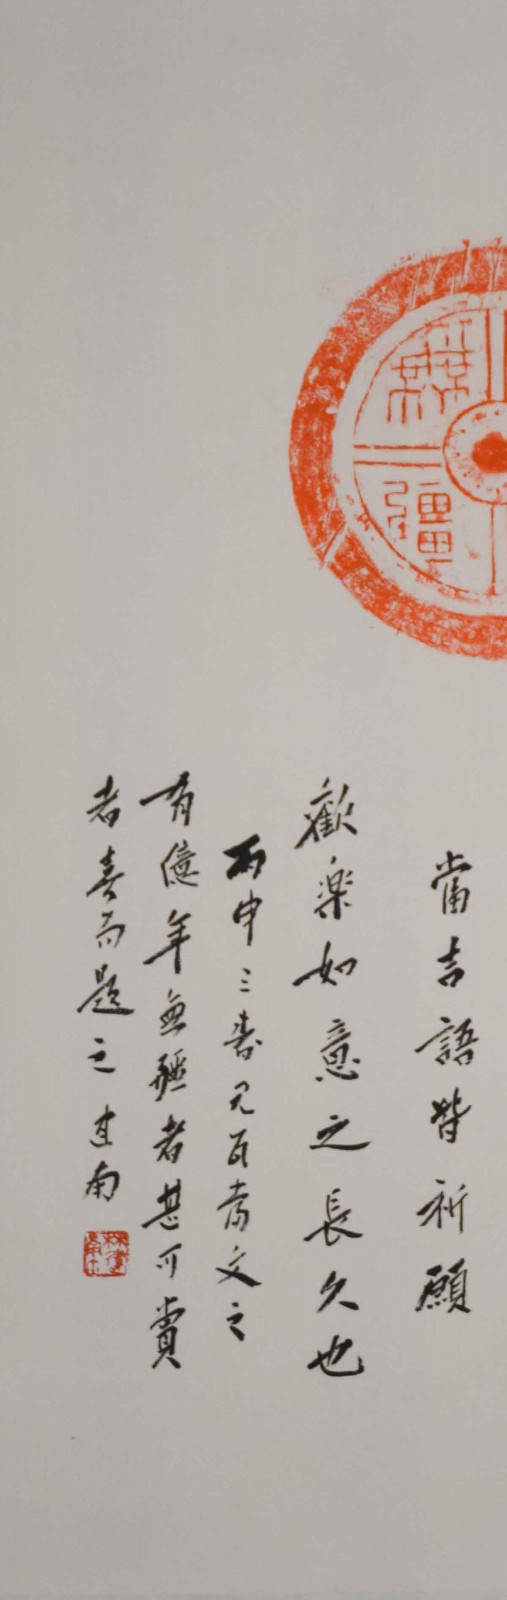 無
疆
當吉語皆祈願
歡樂如意之長久也
丙申三春見瓦當文之
有億年無疆者甚可賞
者喜而題之建南